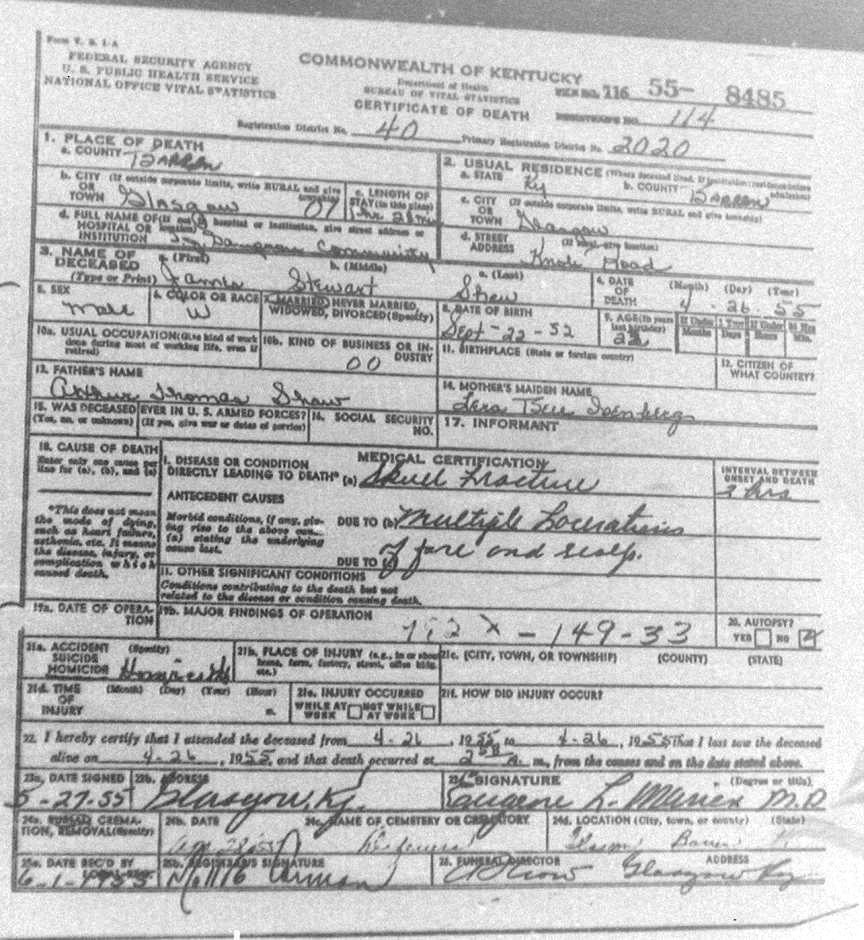 Form V. S. 1-A
FEDERAL SECURITY AGENCY
U. S. PUBLIC HEALTH SERVICE
NATIONAL OFFICE VITAL STATISTICS
COMMONWEALTH OF KENTUCKY
Department of Health
BUREAU OF VITAL STATISTICS
CERTIFICATE OF DEATH
FILE NO. 116 55- 8485
REGISTRAR'S NO. 114
Registration District No. 40 Primary Registration District No. 2020
1. PLACE OF DEATH
a. COUNTY Barren
b. CITY (If outside corporate limits, write RURAL and give township)
OR
TOWN Glasgow 07
c. LENGTH OF
STAY (in this place)
d. FULL NAME OF (If not in hospital or institution, give street address or location)
HOSPITAL OR
INSTITUTION T. J. Samson Community
2. USUAL RESIDENCE (Where deceased lived. If institution: residence before admission)
a. STATE Ky b. COUNTY Barren
c. CITY (If outside corporate limits, write RURAL and give township)
OR
TOWN Glasgow
d. STREET (If rural, give location)
ADDRESS Knob Road
3. NAME OF a. (First) b. (Middle) c. (Last)
DECEASED
(Type or Print) James Stewart Shaw
4. DATE (Month) (Day) (Year)
OF
DEATH 4-26-55
5. SEX
Male
6. COLOR OR RACE
W
7. MARRIED, NEVER MARRIED,
WIDOWED, DIVORCED (Specify)
8. DATE OF BIRTH
Sept-22-52
9. AGE (In years
last birthday)
If Under 1 Year
Months Days
If Under 24 Hrs
Hours Min.
10a. USUAL OCCUPATION (Give kind of work
done during most of working life, even if
retired)
10b. KIND OF BUSINESS OR IN-
DUSTRY
00
11. BIRTHPLACE (State or foreign country)
12. CITIZEN OF
WHAT COUNTRY?
13. FATHER'S NAME
Arthur Thomas Shaw
14. MOTHER'S MAIDEN NAME
Isenberg
15. WAS DECEASED EVER IN U. S. ARMED FORCES?
(Yes, no, or unknown) (If yes, give war or dates of service)
16. SOCIAL SECURITY
NO.
17. INFORMANT
18. CAUSE OF DEATH
Enter only one cause per
line for (a), (b), and (c)
*This does not mean
the mode of dying,
such as heart failure,
asthenia, etc. It means
the disease, injury, or
complication which
caused death.
MEDICAL CERTIFICATION
I. DISEASE OR CONDITION
DIRECTLY LEADING TO DEATH* (a) Skull Fracture
INTERVAL BETWEEN
ONSET AND DEATH
2 hrs
ANTECEDENT CAUSES
Morbid conditions, if any, giv-
ing rise to the above cause
(a) stating the underlying
cause last.
DUE TO (b) Multiple Lacerations
DUE TO (c) of face and scalp.
II. OTHER SIGNIFICANT CONDITIONS
Conditions contributing to the death but not
related to the disease or condition causing death.
19a. DATE OF OPERA-
TION
19b. MAJOR FINDINGS OF OPERATION
20. AUTOPSY?
YES NO X
21a. ACCIDENT (Specify)
SUICIDE
HOMICIDE Homicide
21b. PLACE OF INJURY (e.g., in or about
home, farm, factory, street, office bldg.
etc.)
21c. (CITY, TOWN, OR TOWNSHIP) (COUNTY) (STATE)
21d. TIME (Month) (Day) (Year) (Hour)
OF
INJURY m.
21e. INJURY OCCURRED
WHILE AT WORK NOT WHILE AT WORK
21f. HOW DID INJURY OCCUR?
22. I hereby certify that I attended the deceased from 4-26, 1955 to 4-26, 1955 that I last saw the deceased
alive on 4-26, 1955, and that death occurred at m., from the causes and on the date stated above.
23a. DATE SIGNED
5-27-55
23b. ADDRESS
Glasgow, Ky.
23c. SIGNATURE (Degree or title)
Eugene L. M.D
24a. BURIAL, CREMA-
TION, REMOVAL (Specify)
24b. DATE
24c. NAME OF CEMETERY OR CREMATORY
24d. LOCATION (City, town, or county) (State)
25a. DATE REC'D BY
LOCAL REG.
6-1-1955
25b. REGISTRAR'S SIGNATURE
26. FUNERAL DIRECTOR ADDRESS
Glasgow Ky